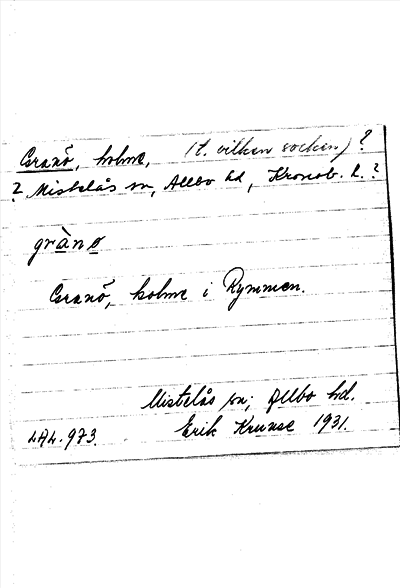 Granö, holme, (t. vilken socken)?
? Mistelås sn, Allbo hd, Kronob. L.?
gràno
Granö, holme i Rymmen.
Mistelås sn; Allbo hd.
LAL. 973. Erik Kruuse 1931.